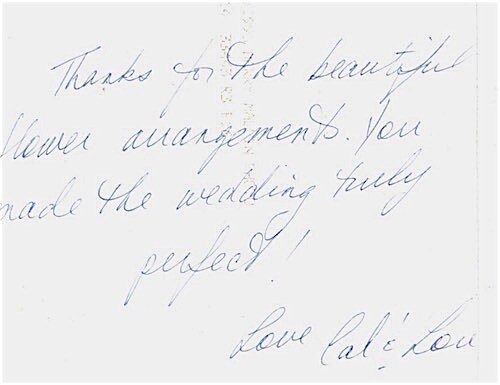 Thanks for the beautiful
flower arrangements. You
made the wedding truly
perfect!
Love Cal & Lou